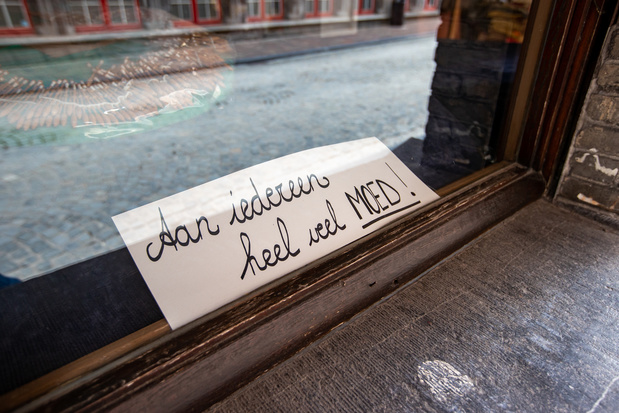 Aan iedereen
heel veel MOED!